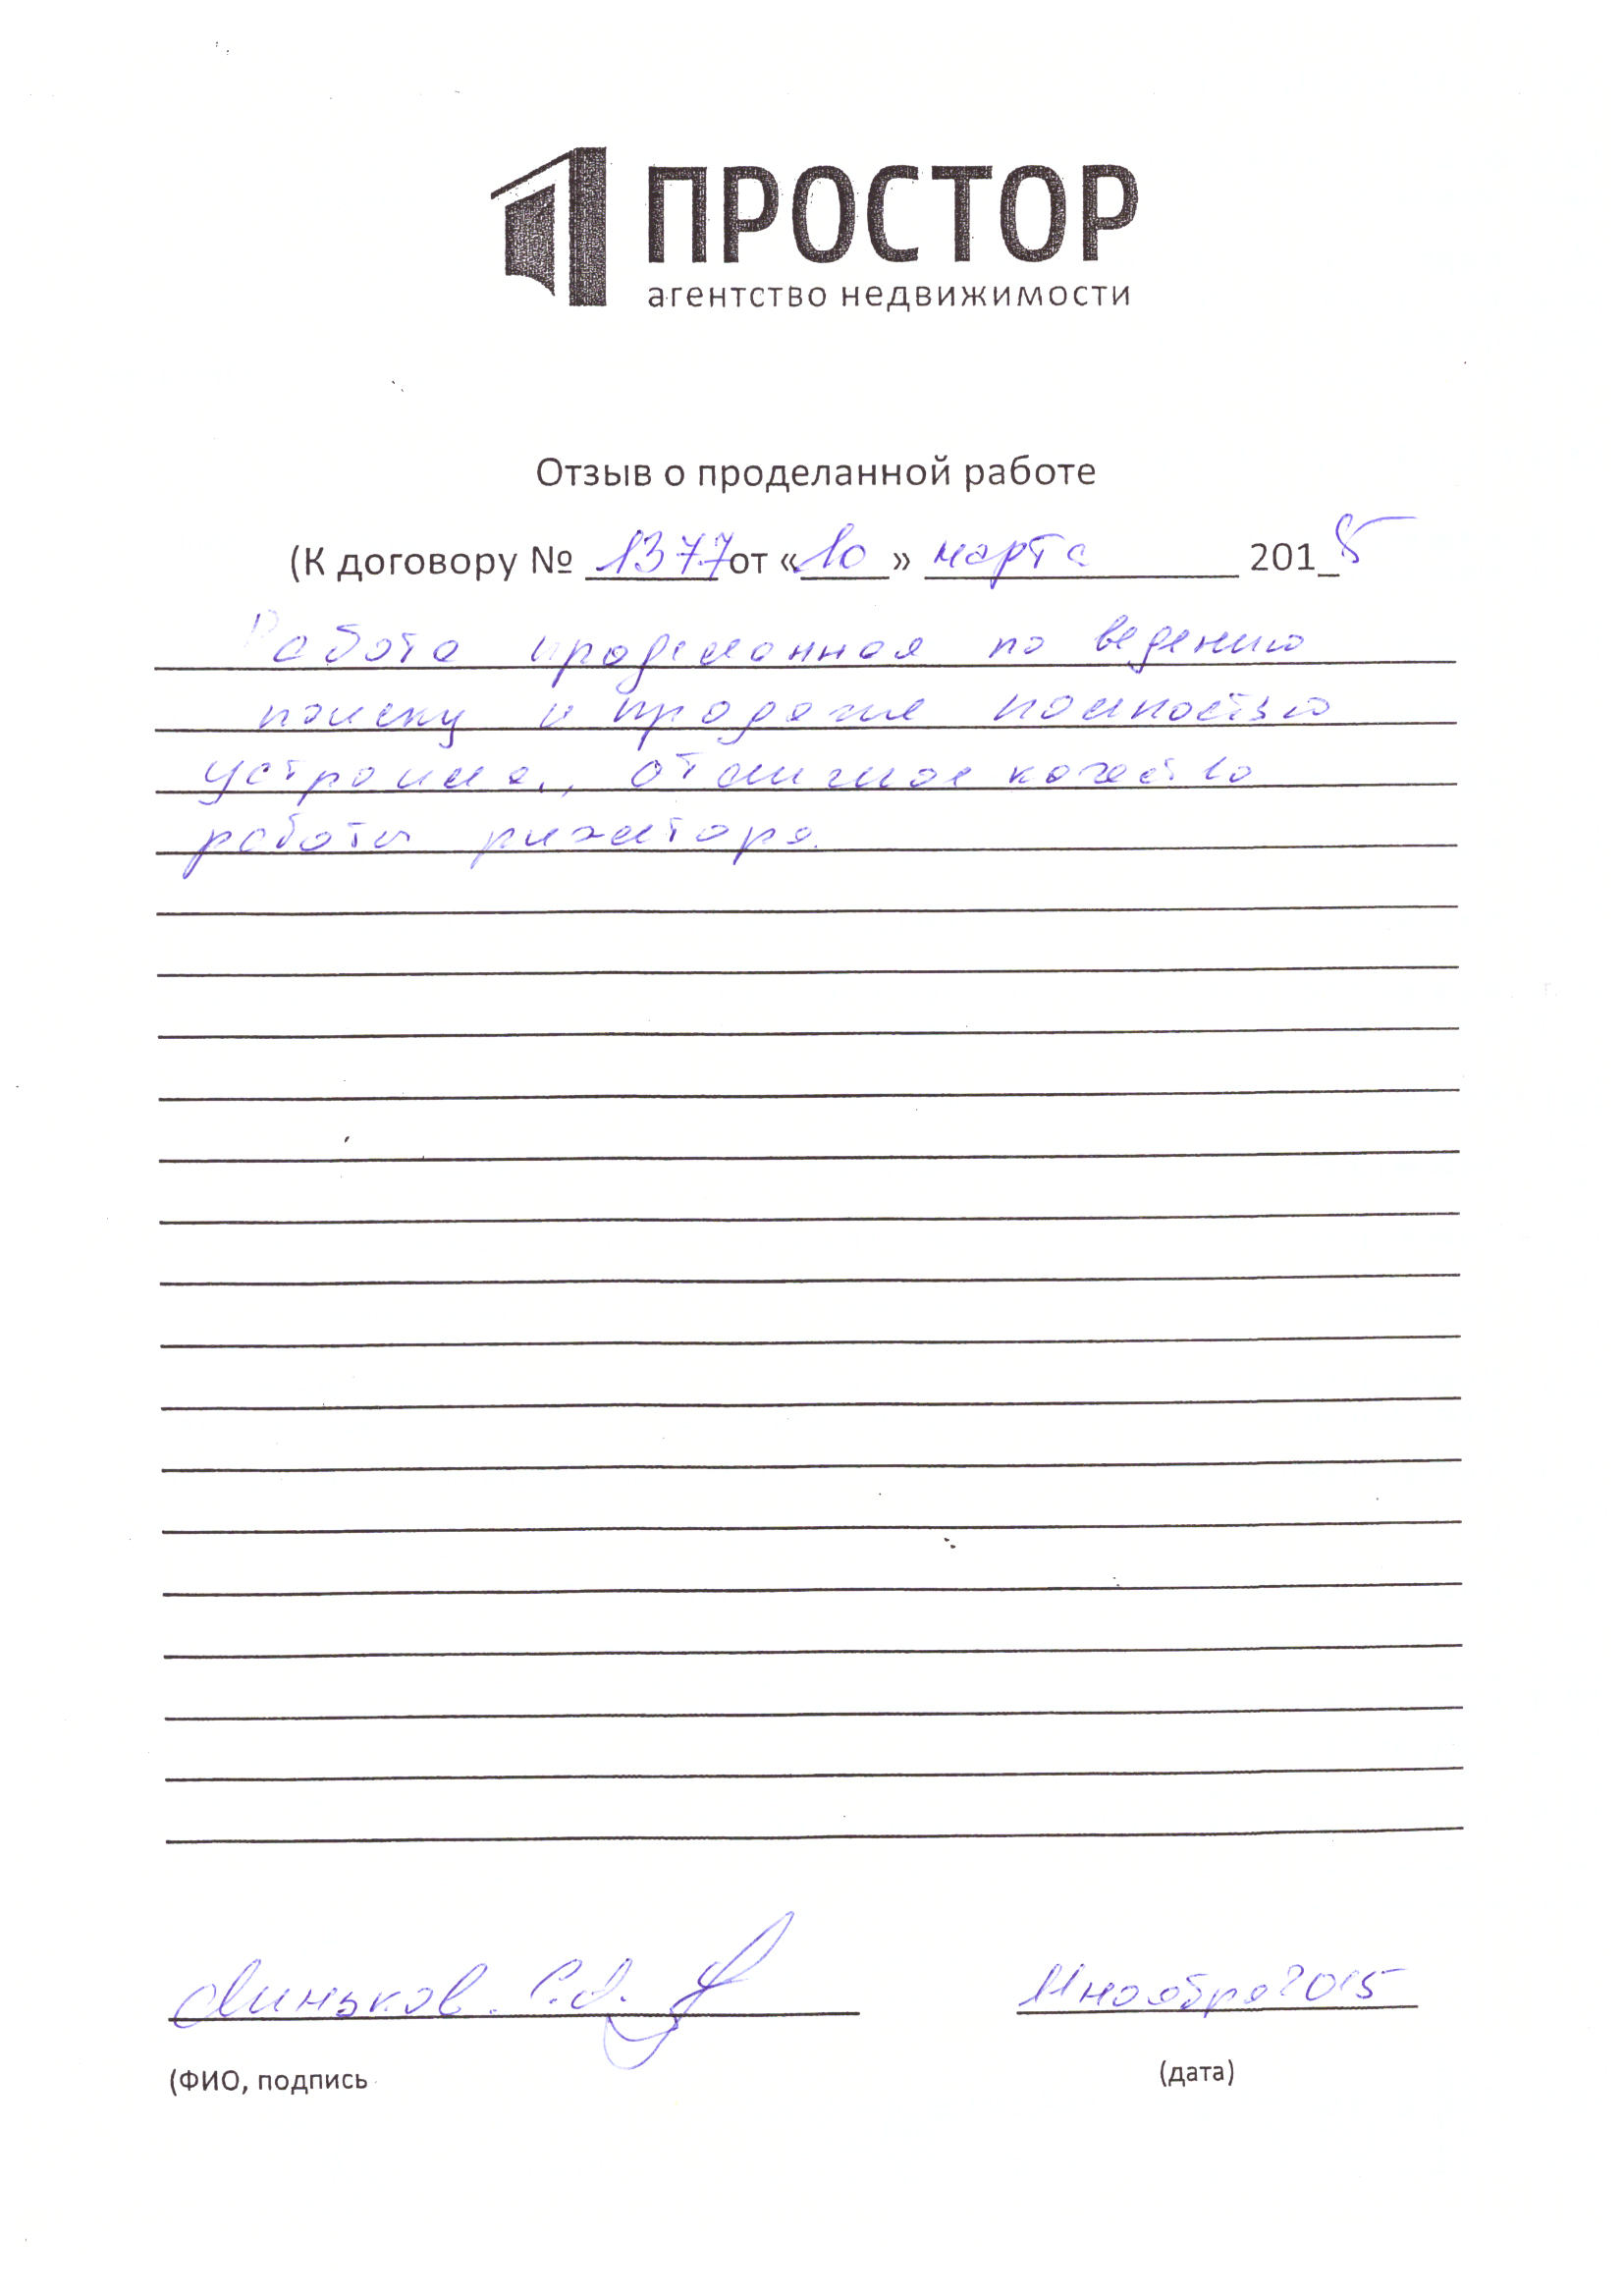 ПРОСТОР
агентство недвижимости
Отзыв о проделанной работе
(К договору № 1377 от «10» марта 2015
Работа проделанная по ведению
поиску и продаже полностью
устроила., отличное качество
работы риэлтора.
Линьков. С.А.
11 ноября 2015
(ФИО, подпись
(дата)